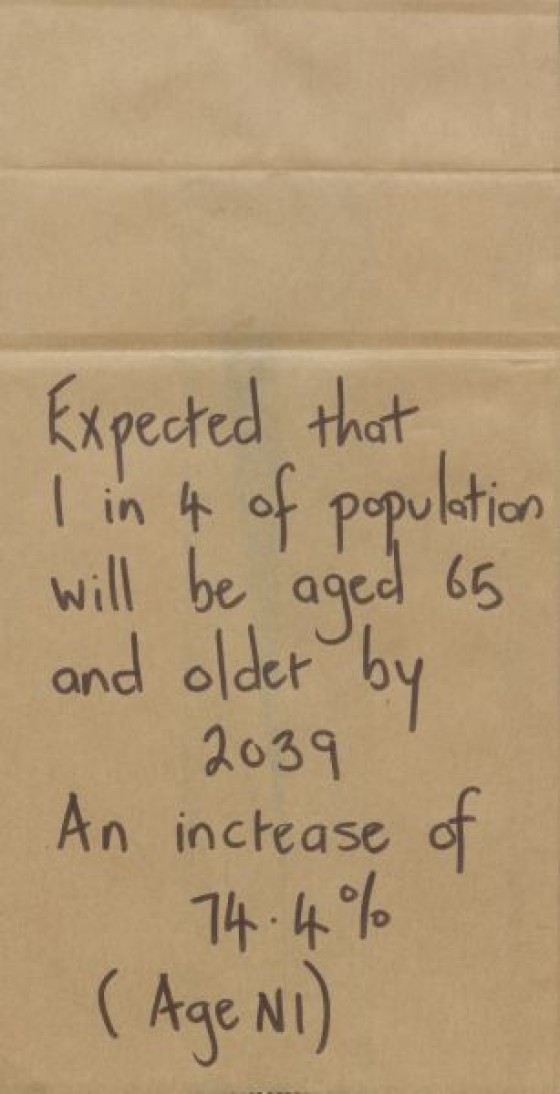 Expected that
1 in 4 of population
will be aged 65
and older by
2039
An increase of
74.4%
(Age NI)